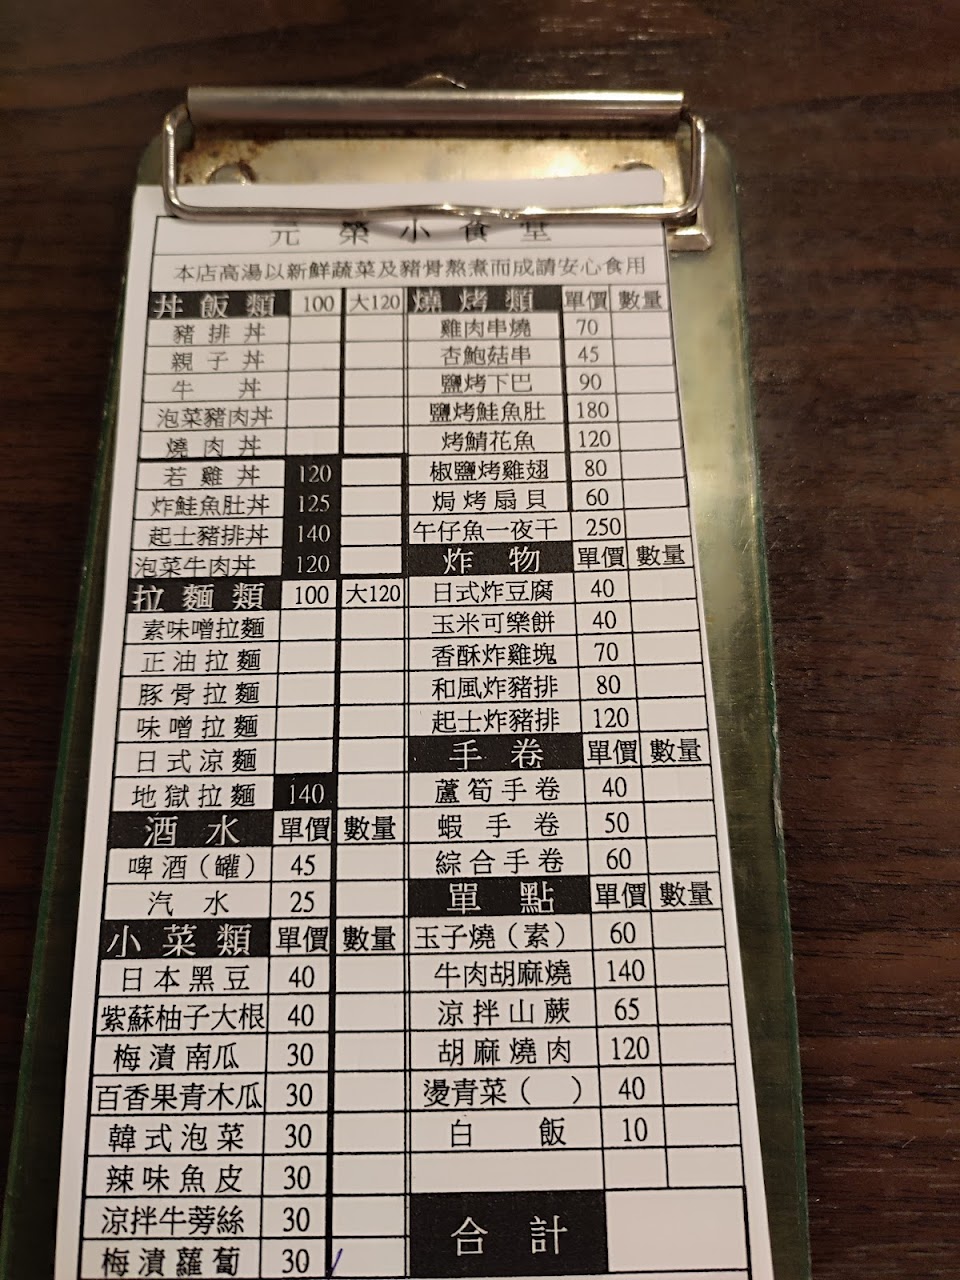 元榮小食堂
本店高湯以新鮮蔬菜及豬骨熬煮而成請安心食用
丼飯類 100 大120
豬排丼
親子丼
牛丼
泡菜豬肉丼
燒肉丼
若雞丼 120
炸鮭魚肚丼 125
起士豬排丼 140
泡菜牛肉丼 120
拉麵類 100 大120
素味噌拉麵
正油拉麵
豚骨拉麵
味噌拉麵
日式涼麵
地獄拉麵 140
酒水 單價 數量
啤酒(罐) 45
汽水 25
小菜類 單價 數量
日本黑豆 40
紫蘇柚子大根 40
梅漬南瓜 30
百香果青木瓜 30
韓式泡菜 30
辣味魚皮 30
涼拌牛蒡絲 30
梅漬蘿蔔 30
燒烤類 單價 數量
雞肉串燒 70
杏鮑菇串 45
鹽烤下巴 90
鹽烤鮭魚肚 180
烤鯖花魚 120
椒鹽烤雞翅 80
焗烤扇貝 60
午仔魚一夜干 250
炸物 單價 數量
日式炸豆腐 40
玉米可樂餅 40
香酥炸雞塊 70
和風炸豬排 80
起士炸豬排 120
手卷 單價 數量
蘆筍手卷 40
蝦手卷 50
綜合手卷 60
單點 單價 數量
玉子燒(素) 60
牛肉胡麻燒 140
涼拌山蕨 65
胡麻燒肉 120
燙青菜( ) 40
白飯 10
合計